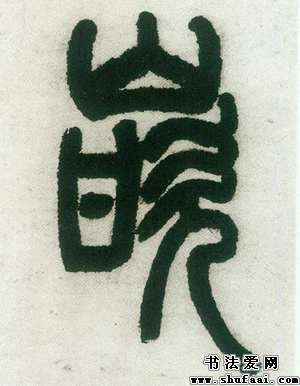 嵌
书法爱网
www.shufaai.com